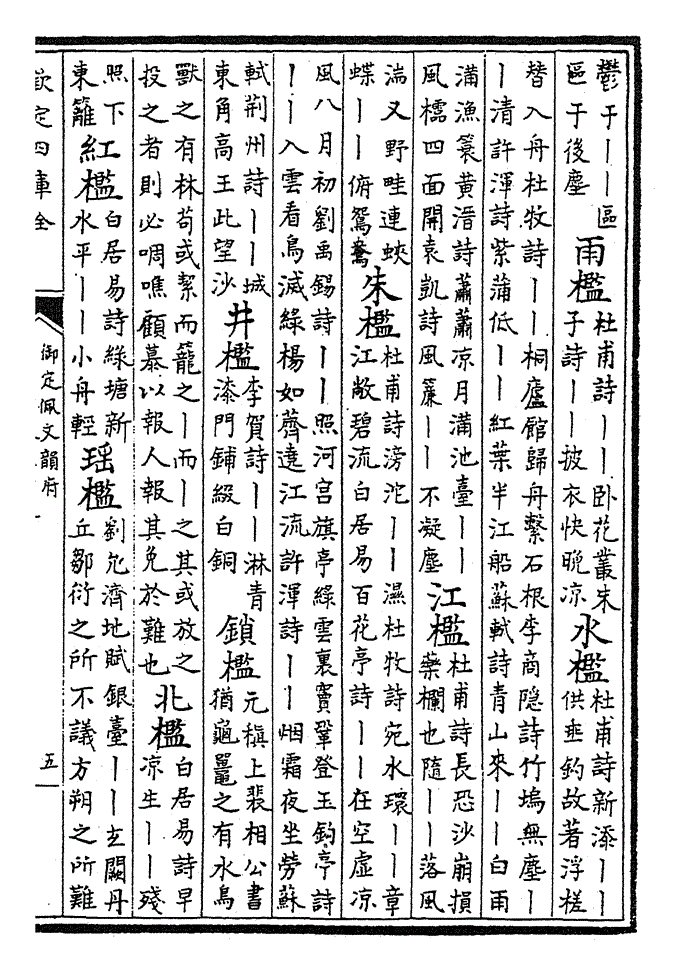 鬱于丨丨區
區于後塵
雨檻
杜甫詩丨丨卧花叢朱
子詩丨丨披衣快晚凉
水檻
杜甫詩新添丨丨
供垂釣故著浮槎
替入舟杜牧詩丨丨桐廬館歸舟繫石根李商隐詩竹塢無塵丨
丨清許渾詩紫蒲低丨丨紅葉半江船蘇軾詩青山來丨丨白雨
滿漁簑黄溍詩蕭蕭凉月滿池臺丨丨
風櫺四面開袁凱詩風簾丨丨不凝塵
江檻
杜甫詩長恐沙崩損
藥欄也隨丨丨落風
湍又野畦連蛺
蝶丨丨俯鴛鴦
朱檻
杜甫詩滂沱丨丨濕杜牧詩宛水環丨丨章
江敞碧流白居易百花亭詩丨丨在空虛凉
風八月初劉禹錫詩丨丨照河宫旗亭綠雲裏竇鞏登玉鈎亭詩
丨丨入雲看鳥滅綠楊如薺遶江流許渾詩丨丨烟霜夜坐勞蘇
軾荆州詩丨丨城
東角高王此望沙
井檻
李賀詩丨丨淋青
漆門鋪綴白銅
鎖檻
元稹上裴相公書
猶龜鼉之有水鳥
獸之有林苟或絜而籠之丨而丨之其或放之
投之者則必啁噍顧慕以報人報其免於難也
北檻
白居易詩早
凉生丨丨殘
照下
東籬
紅檻
白居易詩綠塘新
水平丨丨小舟輕
瑶檻
劉允濟地賦銀臺丨丨玄闕丹
丘鄒衍之所不議方朔之所難
欽定四庫全
御定佩文韻府
五